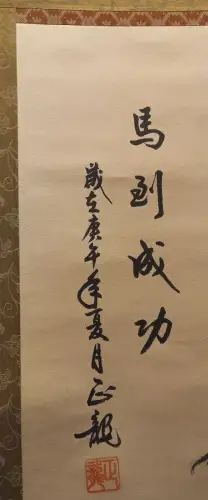 馬到成功
歲在庚午年夏月正龍
正龍